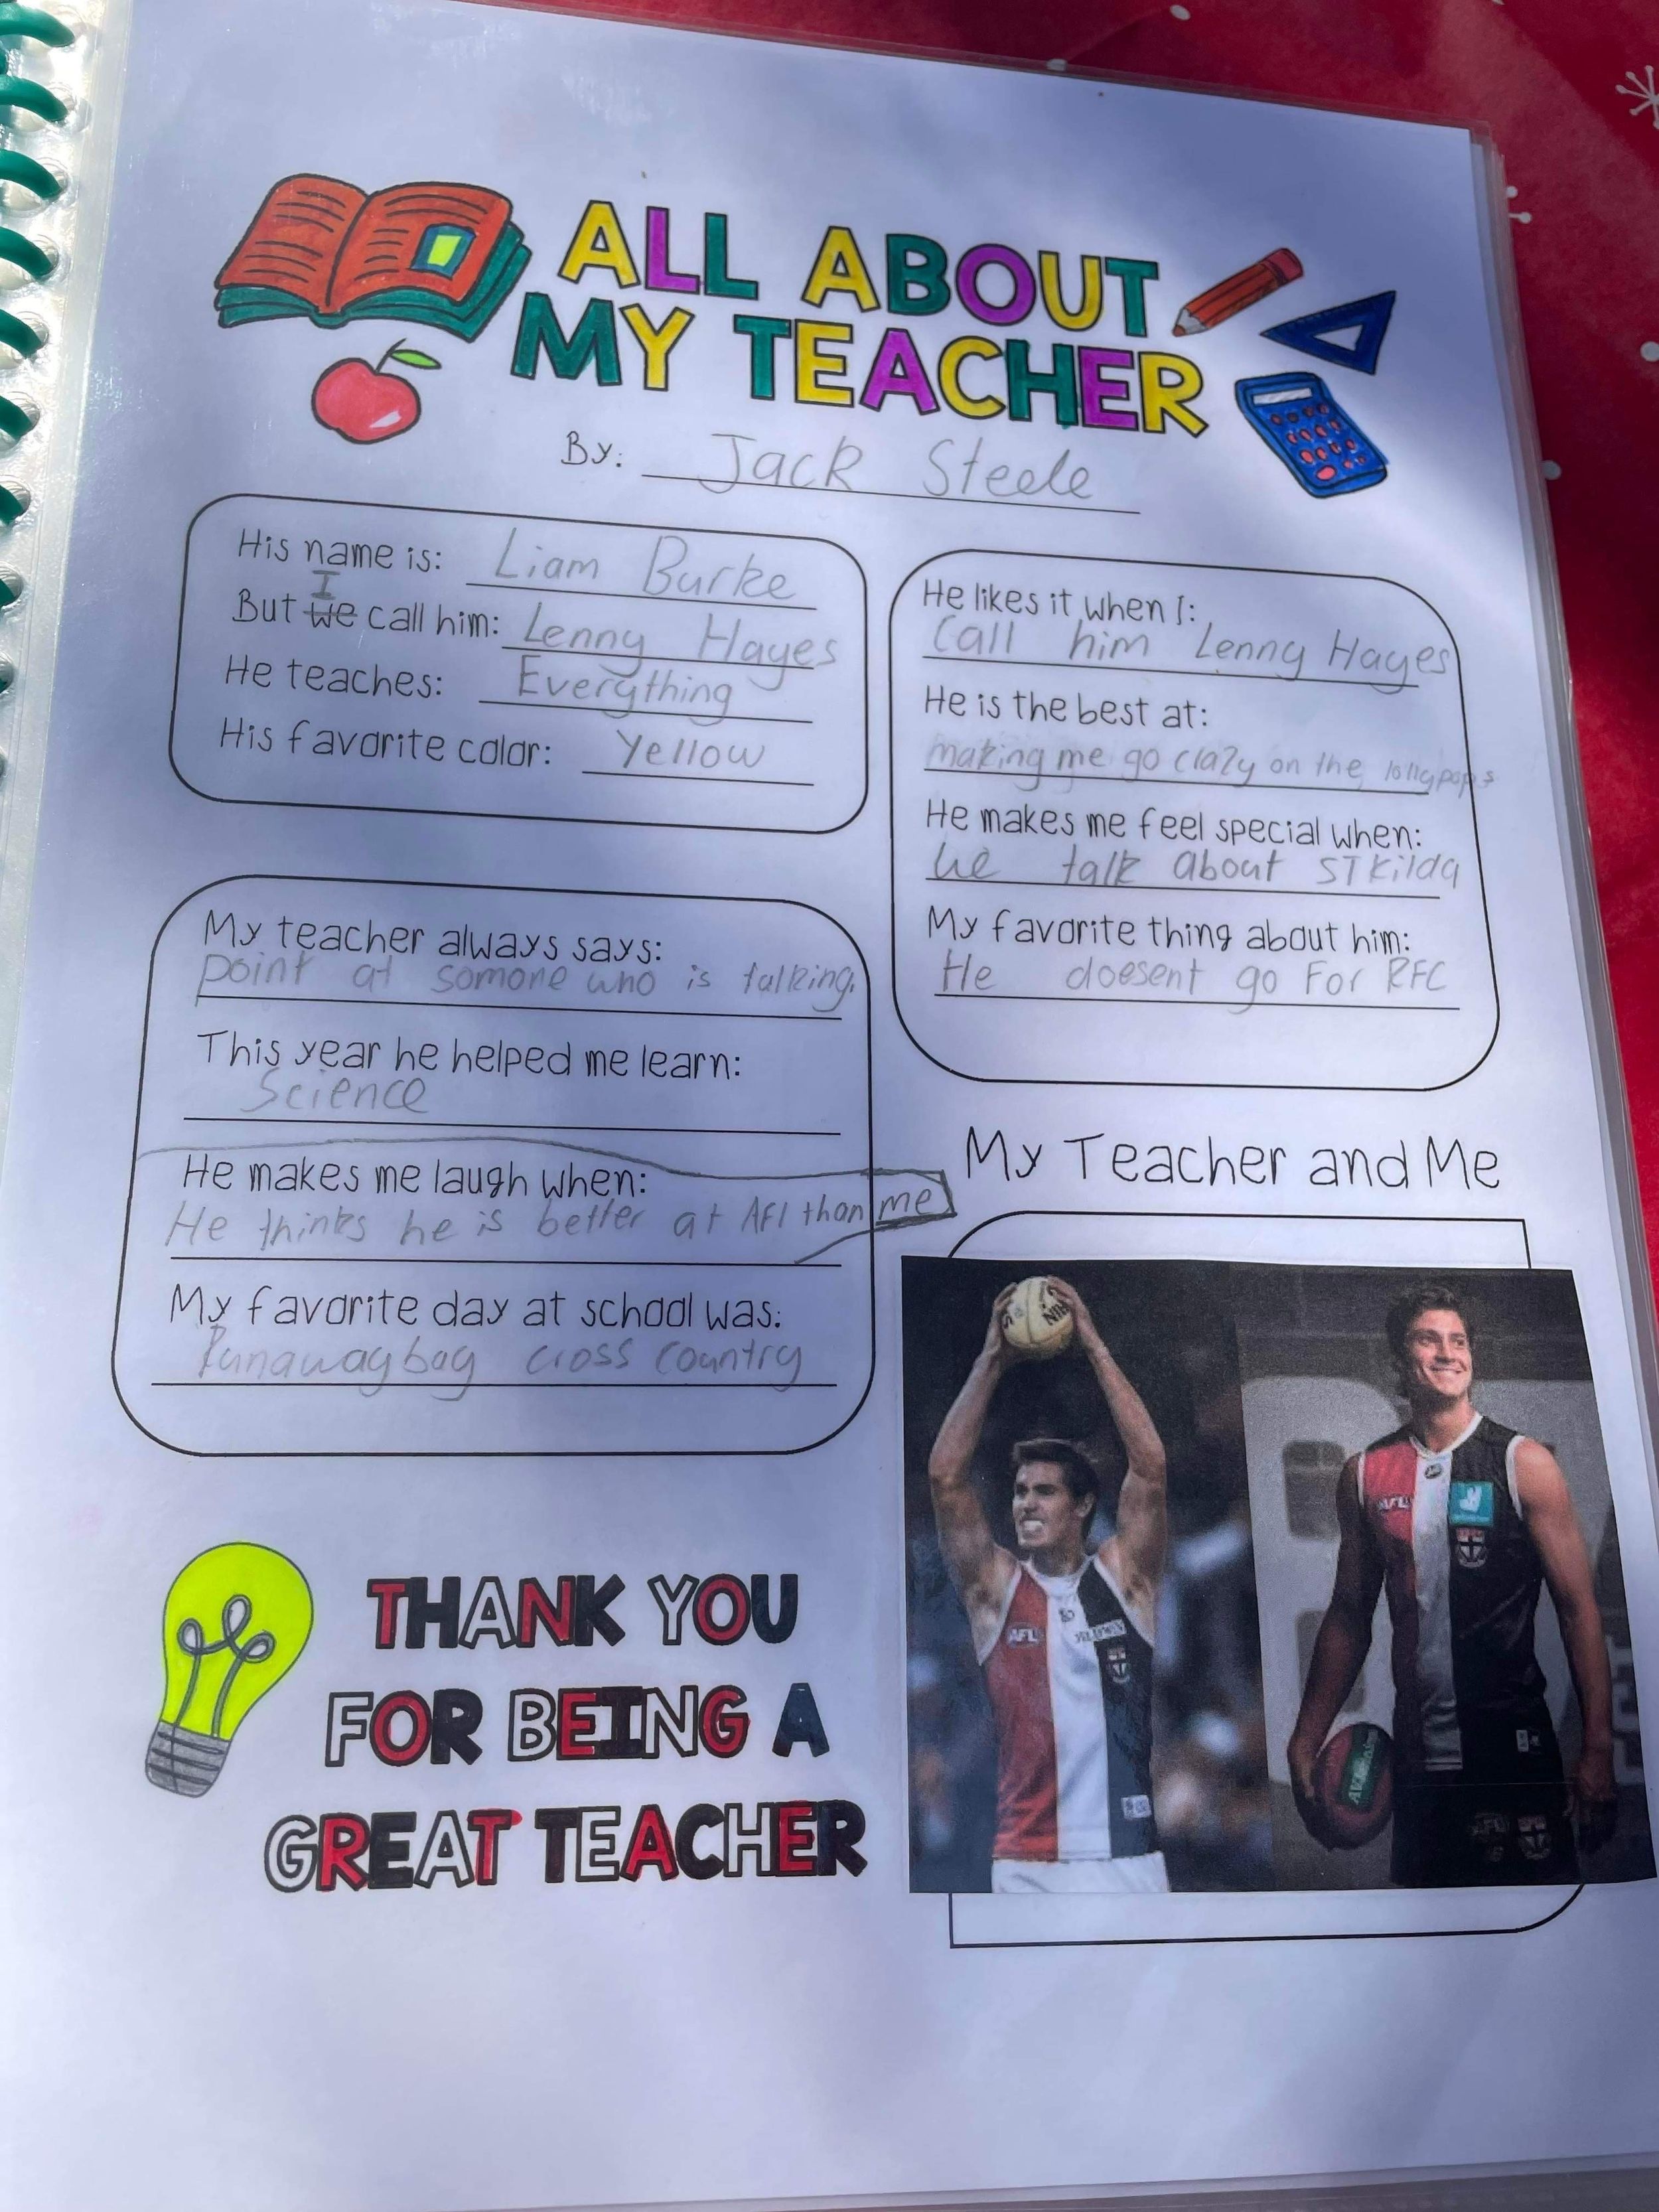 ALL ABOUT
MY TEACHER
By: Jack Steele
His name is: Liam Burke
I
But we call him: Lenny Hayes
He teaches: Everything
His favorite color: Yellow
He likes it when I:
Call him Lenny Hayes
He is the best at:
making me go clazy on the lollypops
He makes me feel special when:
we talk about STKilda
My favorite thing about him:
He doesent go For RFC
My teacher always says:
point at somone who is talking.
This year he helped me learn:
Science
He makes me laugh when:
He thinks he is better at AFl than me
My favorite day at school was:
Runawaybag cross country
My Teacher and Me
AFL
AFL
THANK YOU
FOR BEING A
GREAT TEACHER